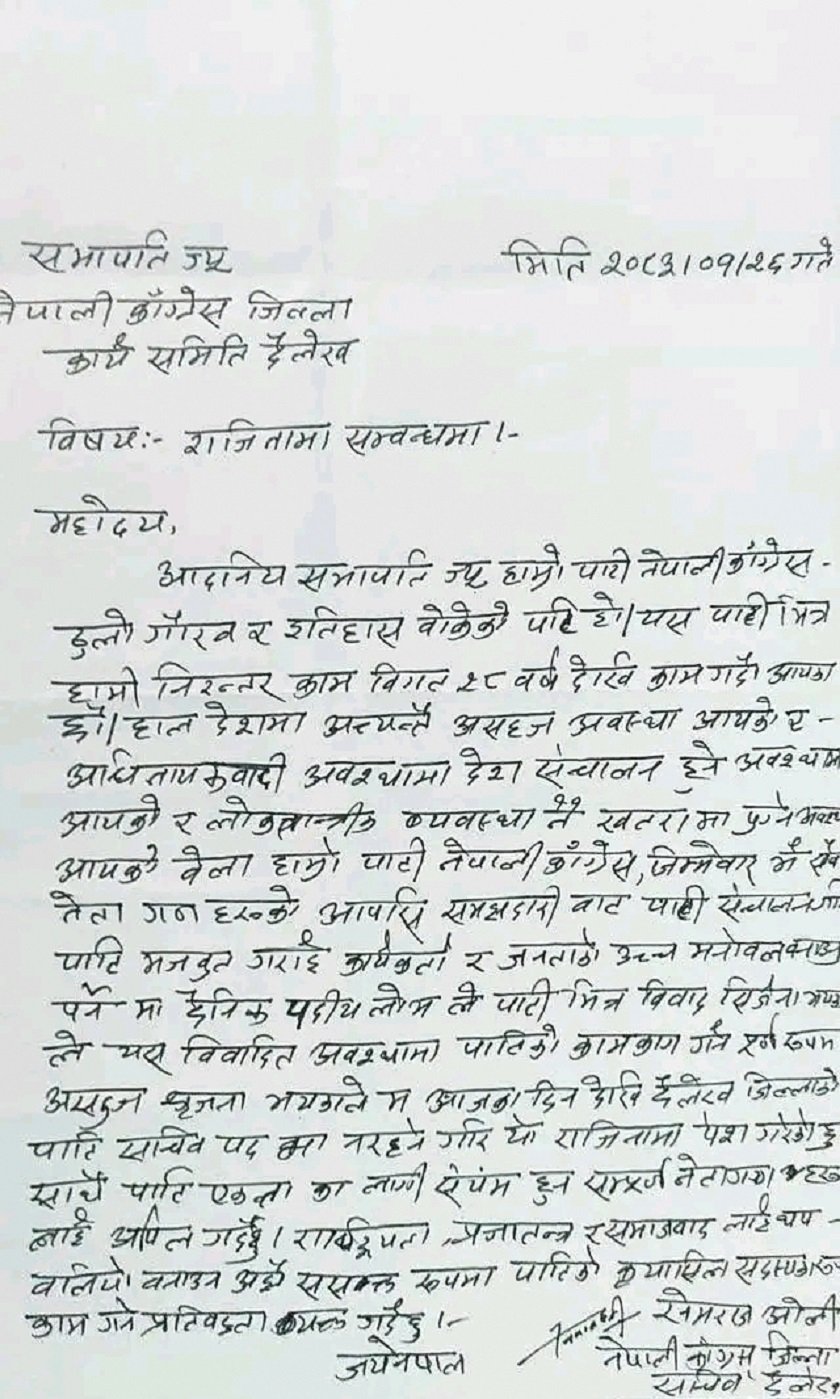 सभापति ज्यू
मिति २०८३।०१।२६ गते
नेपाली काँग्रेस जिल्ला
कार्य समिति दैलेख
विषयः- राजिनामा सम्वन्धमा ।-
महोदय,
आदानिय सभापति ज्यू हाम्रो पार्टी नेपाली काँग्रेस -
ठुलो गौरव र इतिहास वोकेको पाटि हो। यस पार्टी भित्र
हामी निरन्तर काम विगत २८ वर्ष देखि काम गर्दै आएका
छौ। हाल देशमा अत्यन्तै असहज अवस्था आएको र -
अधिनायकवादी अवश्थामा देश संचालन हुने अवश्थामा
आएको र लोकतान्त्रीक व्यवस्था नै खतरामा पुग्ने
आएको वेला हाम्रो पार्टी नेपाली काँग्रेस, जिम्मेवार भै
नेता गण हरुको आपसि समझदारी वाट पार्टी संचालन
पाटि मजवुत गराई कार्यकर्ता र जनताको उच्च मनोवल
पर्ने मा दैनिक पदीय लोभ ले पार्टी भित्र विवाद सिर्जना
ले यस विवादित अवश्थामा पार्तिको कामकाज गर्न पूर्ण रूपमा
असहज श्रृजना भयकाले म आजका दिन देखि दैलेख जिल्लाको
पार्टि सचिव पद मा नरहने गरि यो राजिनामा पेश गरेको छु
साथै पार्टि एकता का लागी संयम हुन सम्पूर्ण नेतागण हरु
लाई अपिल गर्दछु। राष्ट्रियता, प्रजातन्त्र र समाजवाद लाई थप -
वलियो वनाउन अझै ससक्त रूपमा पार्टिको कृयासिल सदस्यका
काम गर्ने प्रतिवद्धता व्यक्त गर्दछु ।-
जयनेपाल
खेमराज ओली
नेपाली काँग्रेस जिल्ला
सचिव दैलेख